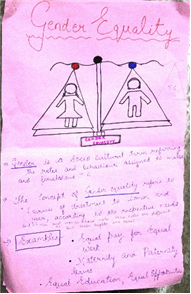 Gender Equality
GENDER
EQUALITY
Gender is a Socio Cultural Term referring
the roles and behaviour assigned to males
and females
The Concept of Gender equality refers to
fairness of treatment to women and
men, according to the respective needs
Examples Equal Pay for Equal
work
Maternity and Paternity
leaves
Equal Education, Equal Opportunities